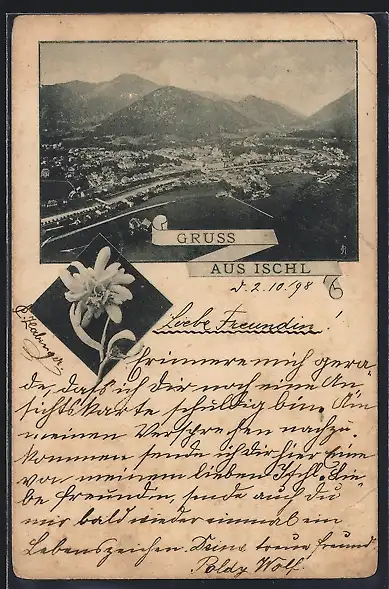 GRUSS
AUS ISCHL
d. 2.10/98
Liebe Freundin!
Erinnere mich gera-
de, dass ich dir noch eine An-
sichtskarte schuldig bin. Um
meinen Versprechen nachzu-
kommen sende ich dir hier eine
von meinem lieben Ischl. Lie-
be Freundin, sende auch du
mir bald wieder einmal ein
Lebenszeichen. Deine treue Freund.
Poldy Wolf.